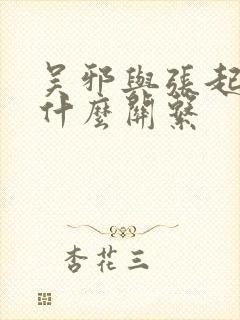 吴邪與張起
什麼關繫
杏花三